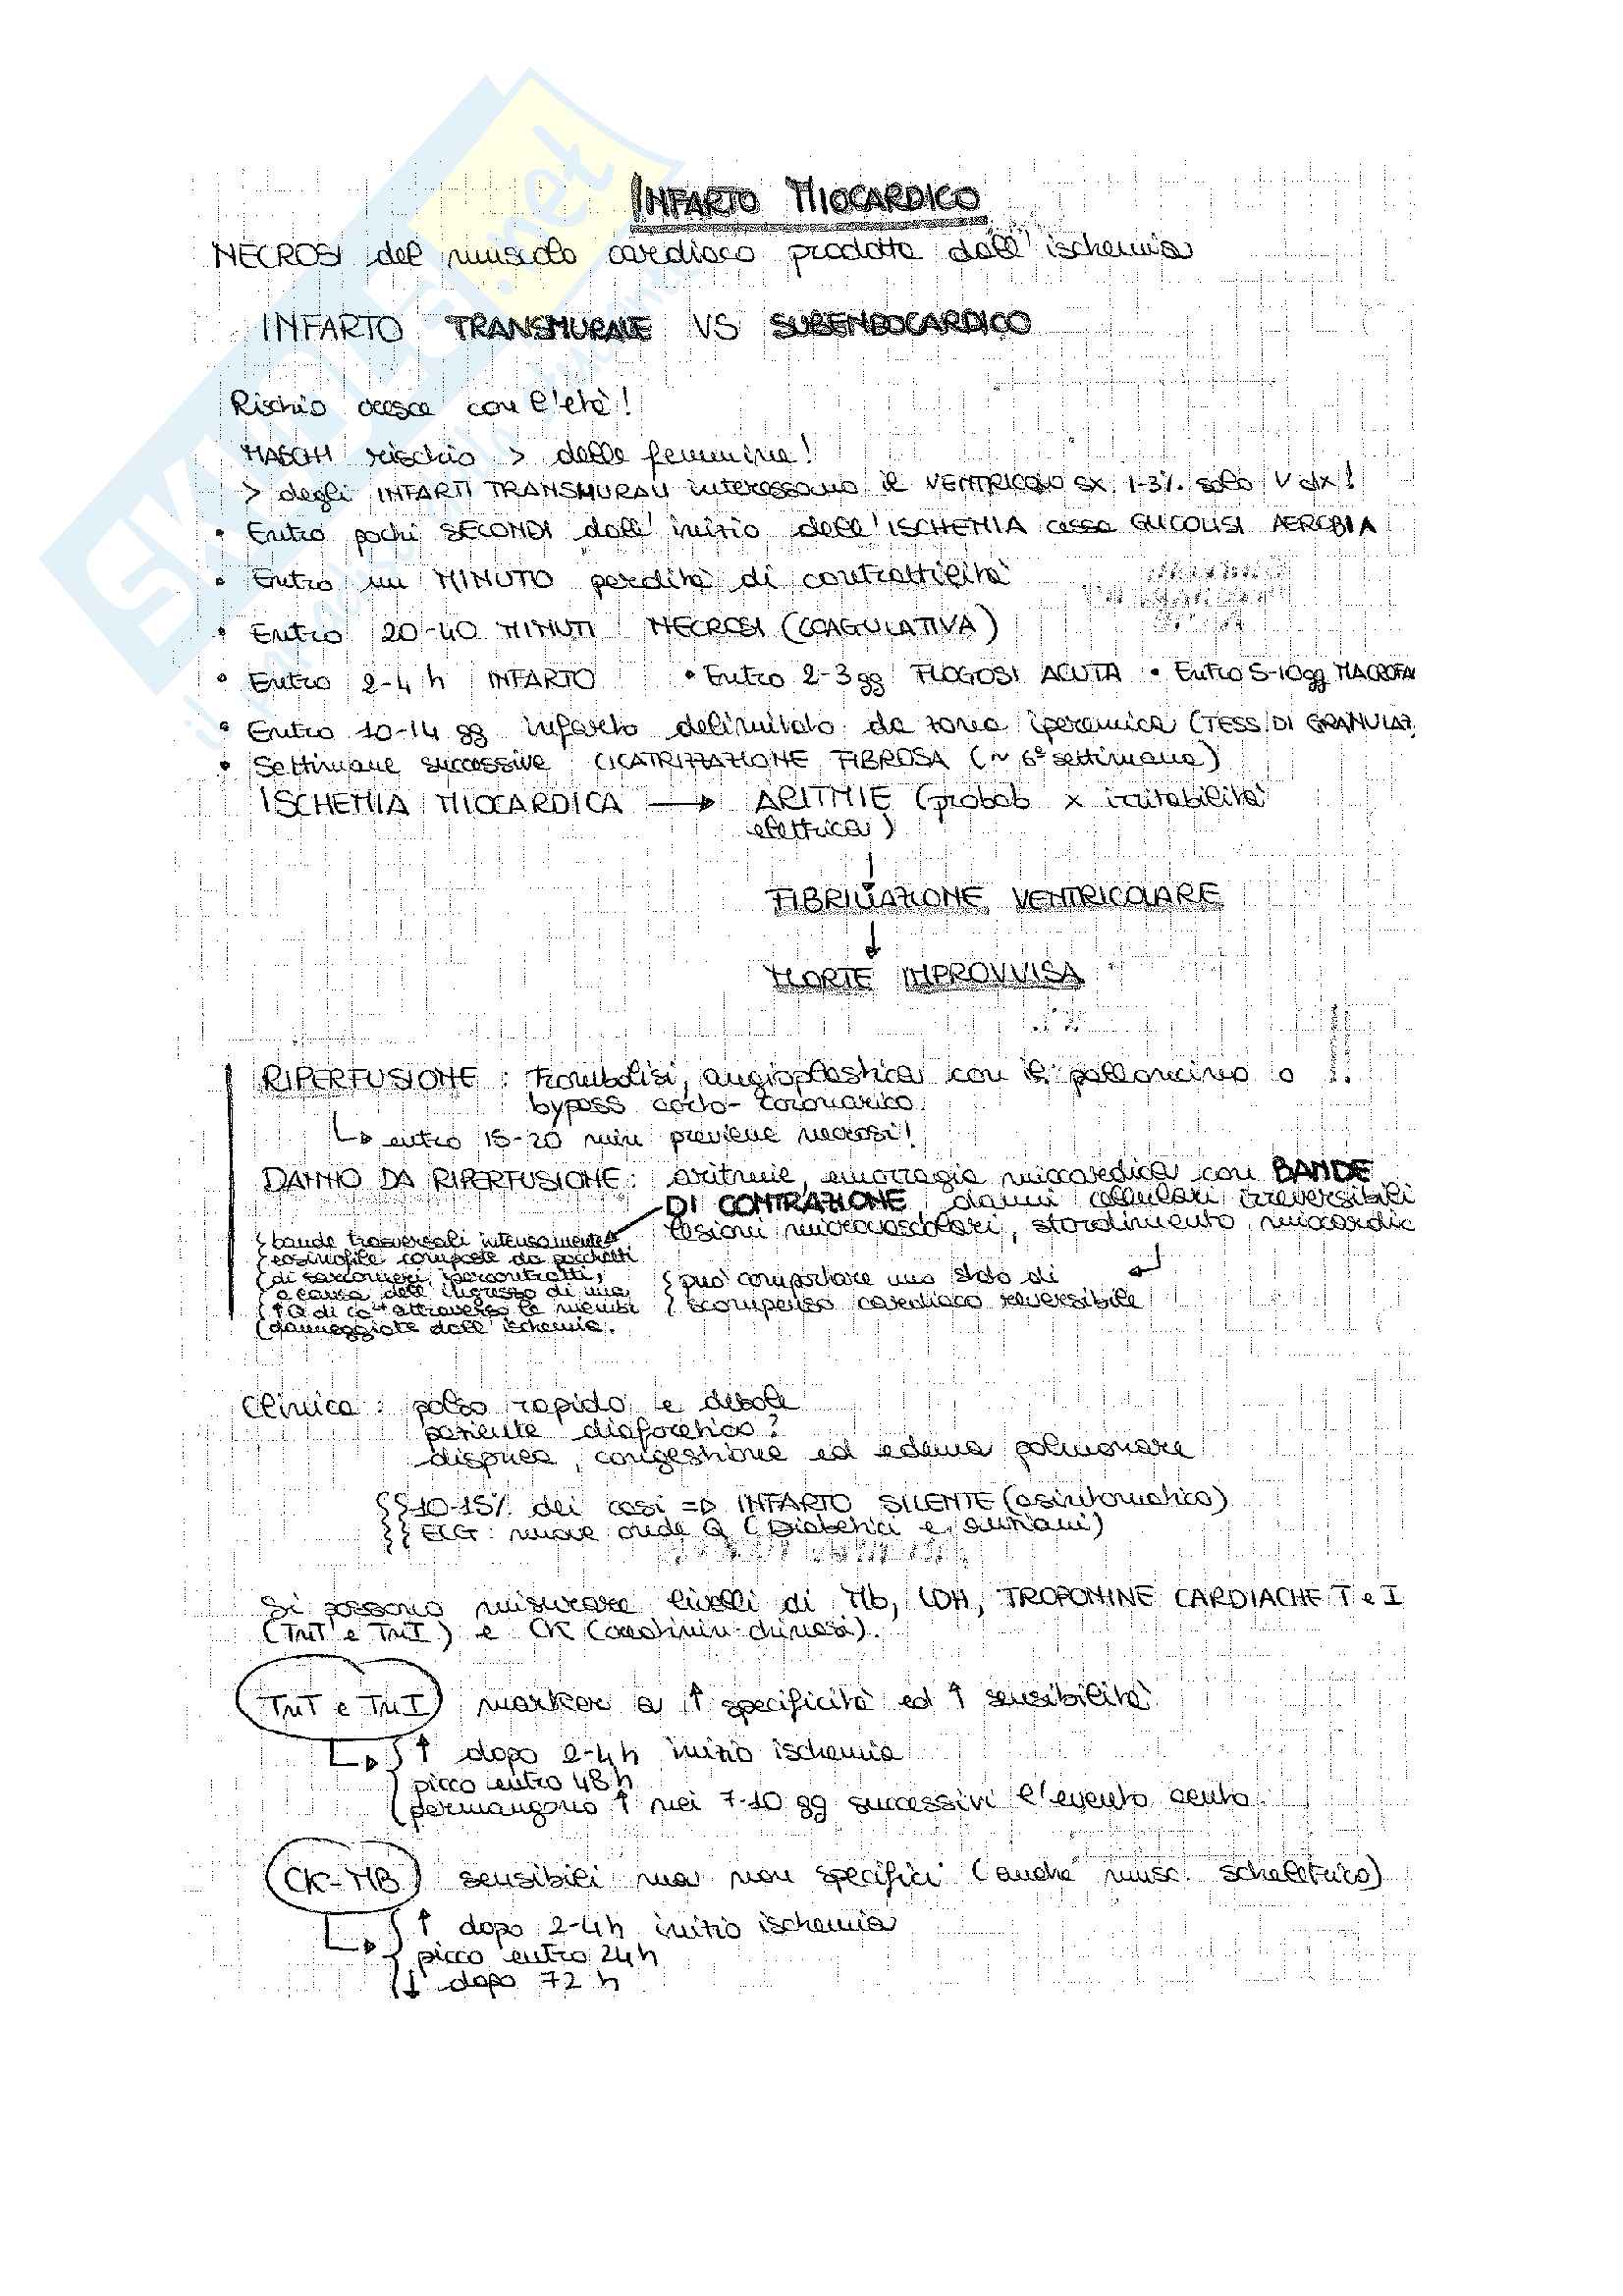 INFARTO MIOCARDICO
NECROSI del muscolo cardiaco prodotta dall'ischemia
INFARTO TRANSMURALE VS SUBENDOCARDICO
Rischio cresce con l'età!
MASCHI rischio > delle femmine!
> degli INFARTI TRANSMURALI interessano il VENTRICOLO SX, 1-3% solo V dx!
• Entro pochi SECONDI dall'inizio dell'ISCHEMIA cessa GLICOLISI AEROBIA
• Entro un MINUTO perdita di contrattilità
• Entro 20-40 MINUTI NECROSI (COAGULATIVA)
• Entro 2-4 h INFARTO • Entro 2-3 gg FLOGOSI ACUTA • Entro 5-10gg MACROFA
• Entro 10-14 gg infarto delimitato da zona iperemica (TESS. DI GRANULAZ
• Settimane successive CICATRIZZAZIONE FIBROSA (~ 6ª settimana)
ISCHEMIA MIOCARDICA → ARITMIE (probab x irritabilità
elettrica)
↓
FIBRILLAZIONE VENTRICOLARE
↓
MORTE IMPROVVISA
RIPERFUSIONE : trombolisi, angioplastica con il palloncino o
bypass aorto-coronarico.
↳ entro 15-20 min previene necrosi!
DANNO DA RIPERFUSIONE: aritmie, emorragia miocardica con BANDE
DI CONTRAZIONE, danni cellulari irreversibili
lesioni microvascolari, stordimento miocardic
bande trasversali intensamente
eosinofile composte da pacchetti
di sarcomeri ipercontratti,
a causa dell'ingresso di una
↑Q di Ca²⁺ attraverso le membr
danneggiate dall'ischemia.
può comportare uno stato di
scompenso cardiaco reversibile
Clinica : polso rapido e debole
paziente diaforetico?
dispnea, congestione ed edema polmonare
10-15% dei casi => INFARTO SILENTE (asintomatico)
ECG : nuove onde Q (Diabetici e anziani)
Si possono misurare livelli di Mb, LDH, TROPONINE CARDIACHE T e I
(TnT e TnI) e CK (creatinin-chinasi).
TnT e TnI marker a ↑ specificità ed ↑ sensibilità
↳ ↑ dopo 2-4h inizio ischemia
picco entro 48h
permangono ↑ nei 7-10 gg successivi l'evento acuto.
CK-MB sensibili ma non specifici (anche musc. scheletrico)
↳ ↑ dopo 2-4h inizio ischemia
picco entro 24h
↓ dopo 72 h